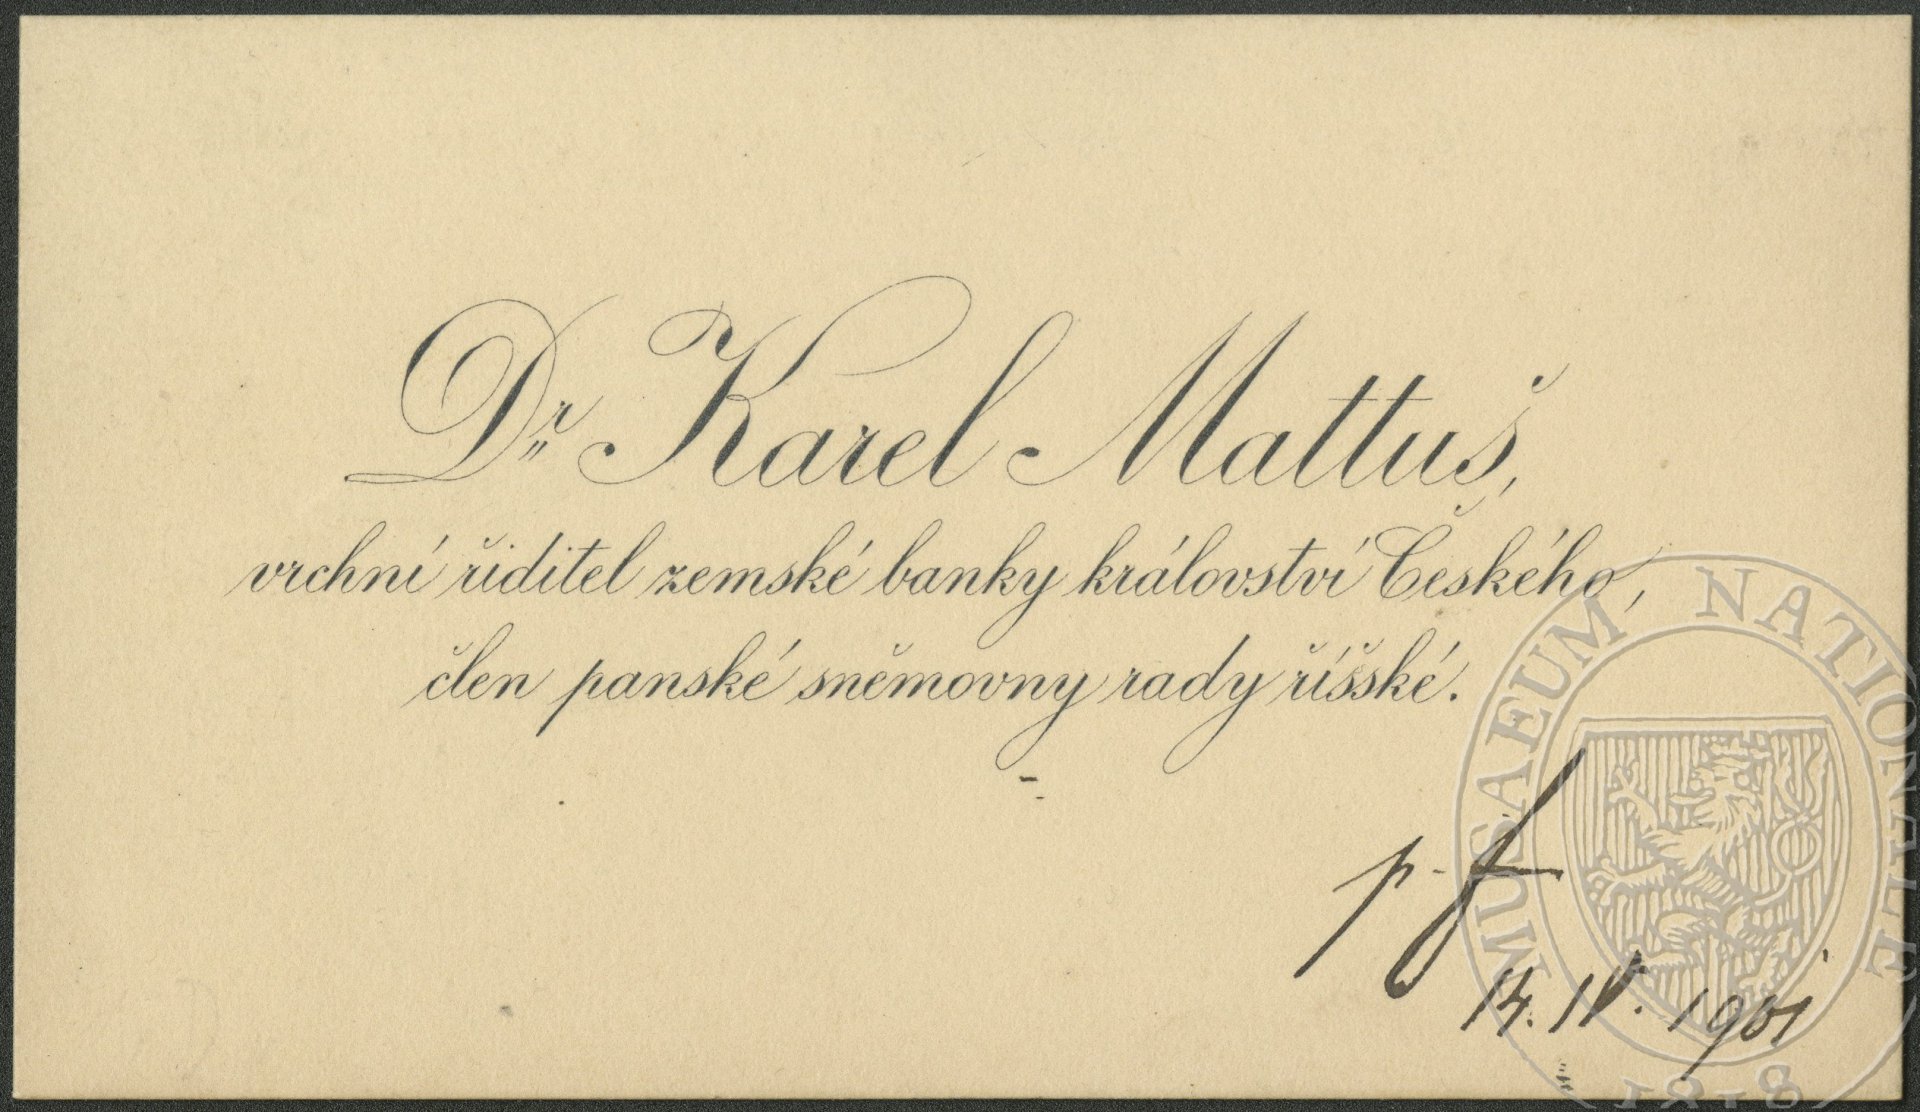 Dr. Karel Mattuš,
vrchní řiditel zemské banky království Českého,
člen panské sněmovny rady říšské.
p. f.
14. IV. 1901
MUSAEUM NATIONALE
1818